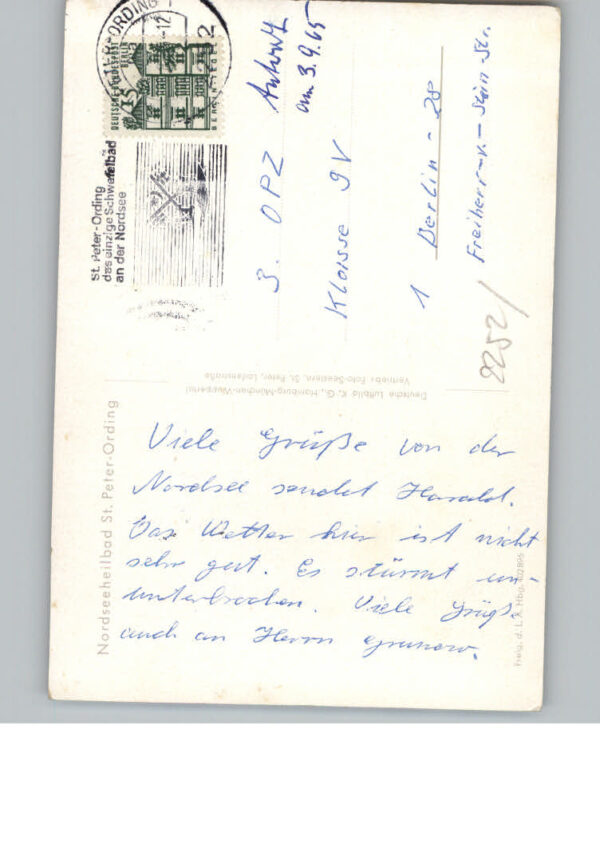 Nordseeheilbad St. Peter-Ording
Viele Grüße von der
Nordsee sendet Harald.
Das Wetter hier ist nicht
sehr gut. Es stürmt un-
unterbrochen. Viele Grüße
auch an Herrn Grunow.
Deutsche Luftbild K. G., Hamburg-München-Wuppertal
Vertrieb: Foto-Seestern, St. Peter, Ladenstraße
Freig. d. L. A. Hbg. 102895
St. Peter-Ording
das einzige Schwefelbad
an der Nordsee
ORDING
DEUTSCHE BUNDESPOST
BERLIN
15
BERLIN-TEGEL
Antwort
am 3.9.65
3. OPZ
Klasse 9V
1 Berlin - 28
Freiherr-v.-Stein Str.
2252/